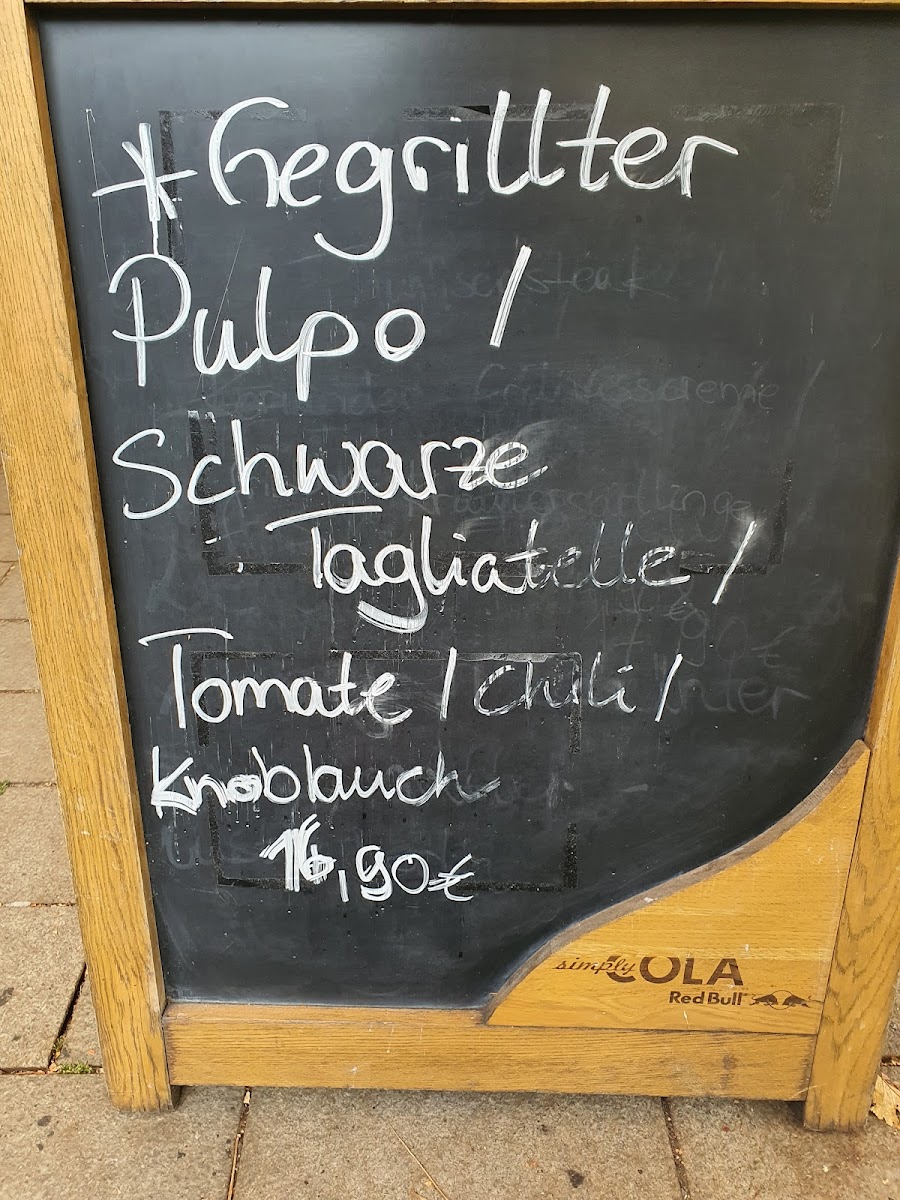 *Gegrillter
Pulpo /
Schwarze
Tagliatelle /
Tomate / Chili /
Knoblauch
16,90€
simply COLA
Red Bull